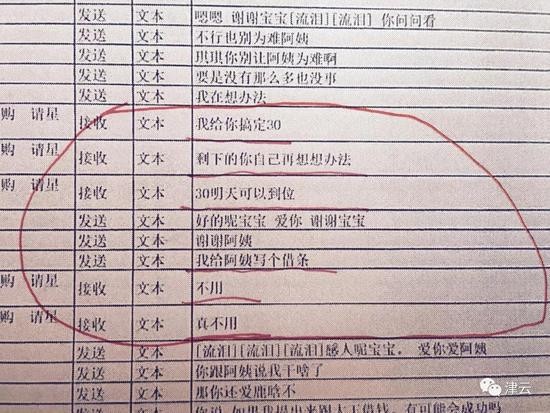 发送 文本 嗯嗯 谢谢宝宝[流泪][流泪] 你问问看
发送 文本 不行也别为难阿姨
发送 文本 琪琪你别让阿姨为难啊
发送 文本 要是没有那么多也没事
发送 文本 我在想办法
购 请星 接收 文本 我给你搞定30
购 请星 接收 文本 剩下的你自己再想想办法
购 请星 接收 文本 30明天可以到位
发送 文本 好的呢宝宝 爱你 谢谢宝宝
发送 文本 谢谢阿姨
发送 文本 我给阿姨写个借条
购 请星 接收 文本 不用
购 请星 接收 文本 真不用
发送 文本 [流泪][流泪][流泪]感人呢宝宝。 爱你爱阿姨
发送 文本 你跟阿姨说我干啥了
发送 文本 那你还爱鹿晗不
发送 文本 你说 如果我提出来跟
借钱，有可能会成功吗
津云